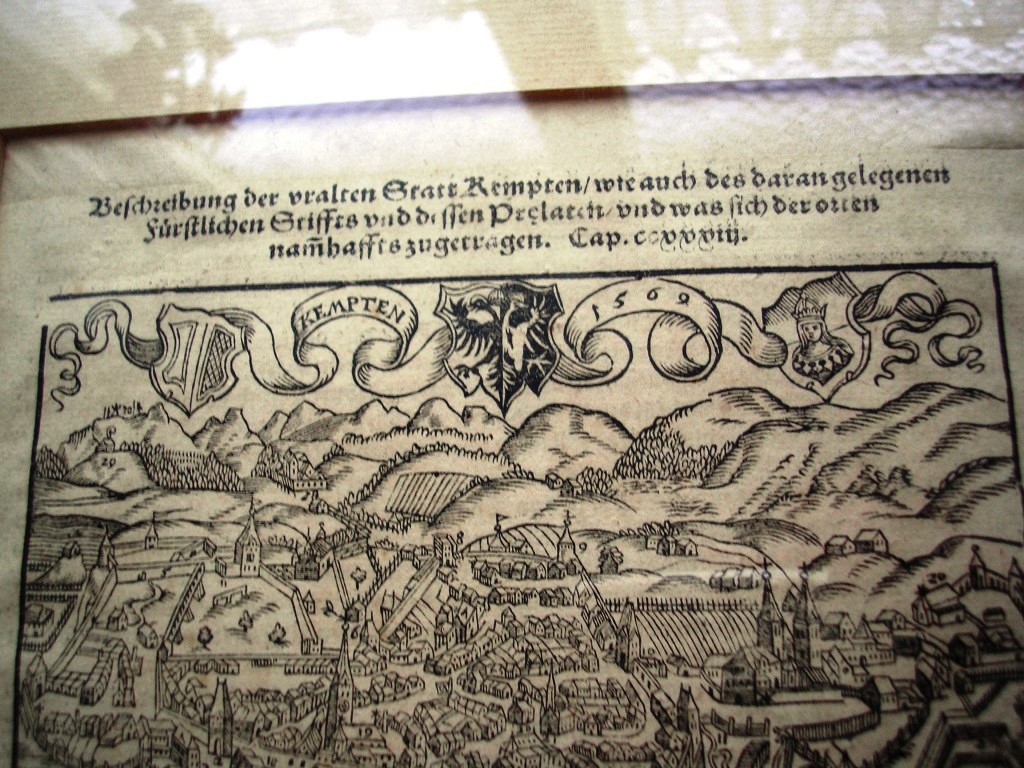 Beschreibung der vralten Statt Kempten/ wie auch des daran gelegenen
Fürstlichen Stiffts vnd dessen Prelaten/ vnd was sich der orten
nam̃haffts zugetragen. Cap. ccxxxiij.
KEMPTEN
1569
20
19